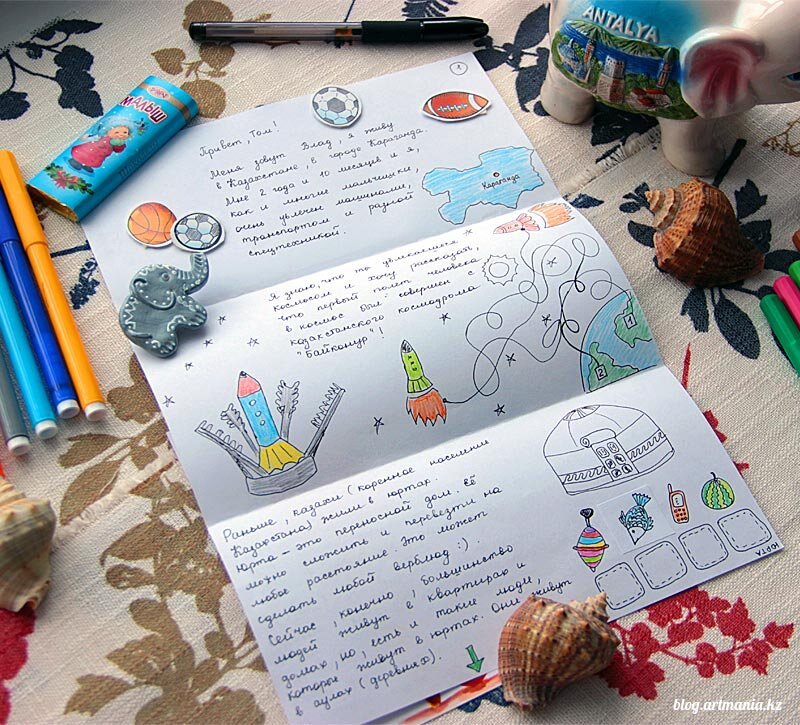 ANTALYA
МАЛЫШ
1
Привет, Том!
Меня зовут Влад, я живу
в Казахстане, в городе Караганда.
Мне 2 года и 10 месяцев и я,
как и многие мальчишки,
очень увлечен машинами,
транспортом и разной
спецтехникой.
Караганда
Я знаю, что ты увлекаешься
космосом и хочу рассказать,
что первый полет человека
в космос был совершен с
казахстанского космодрома
"Байконур"!
1
2
Раньше, казахи (коренное население
Казахстана) жили в юртах.
Юрта - это переносной дом. Её
можно сложить и перевезти на
любое расстояние. Это может
сделать любой верблюд :).
Сейчас, конечно, большинство
людей живут в квартирах и
домах, но, есть и такие люди,
которые живут в юртах. Они живут
в аулах (деревнях).
ЮРТА
blog.artmania.kz